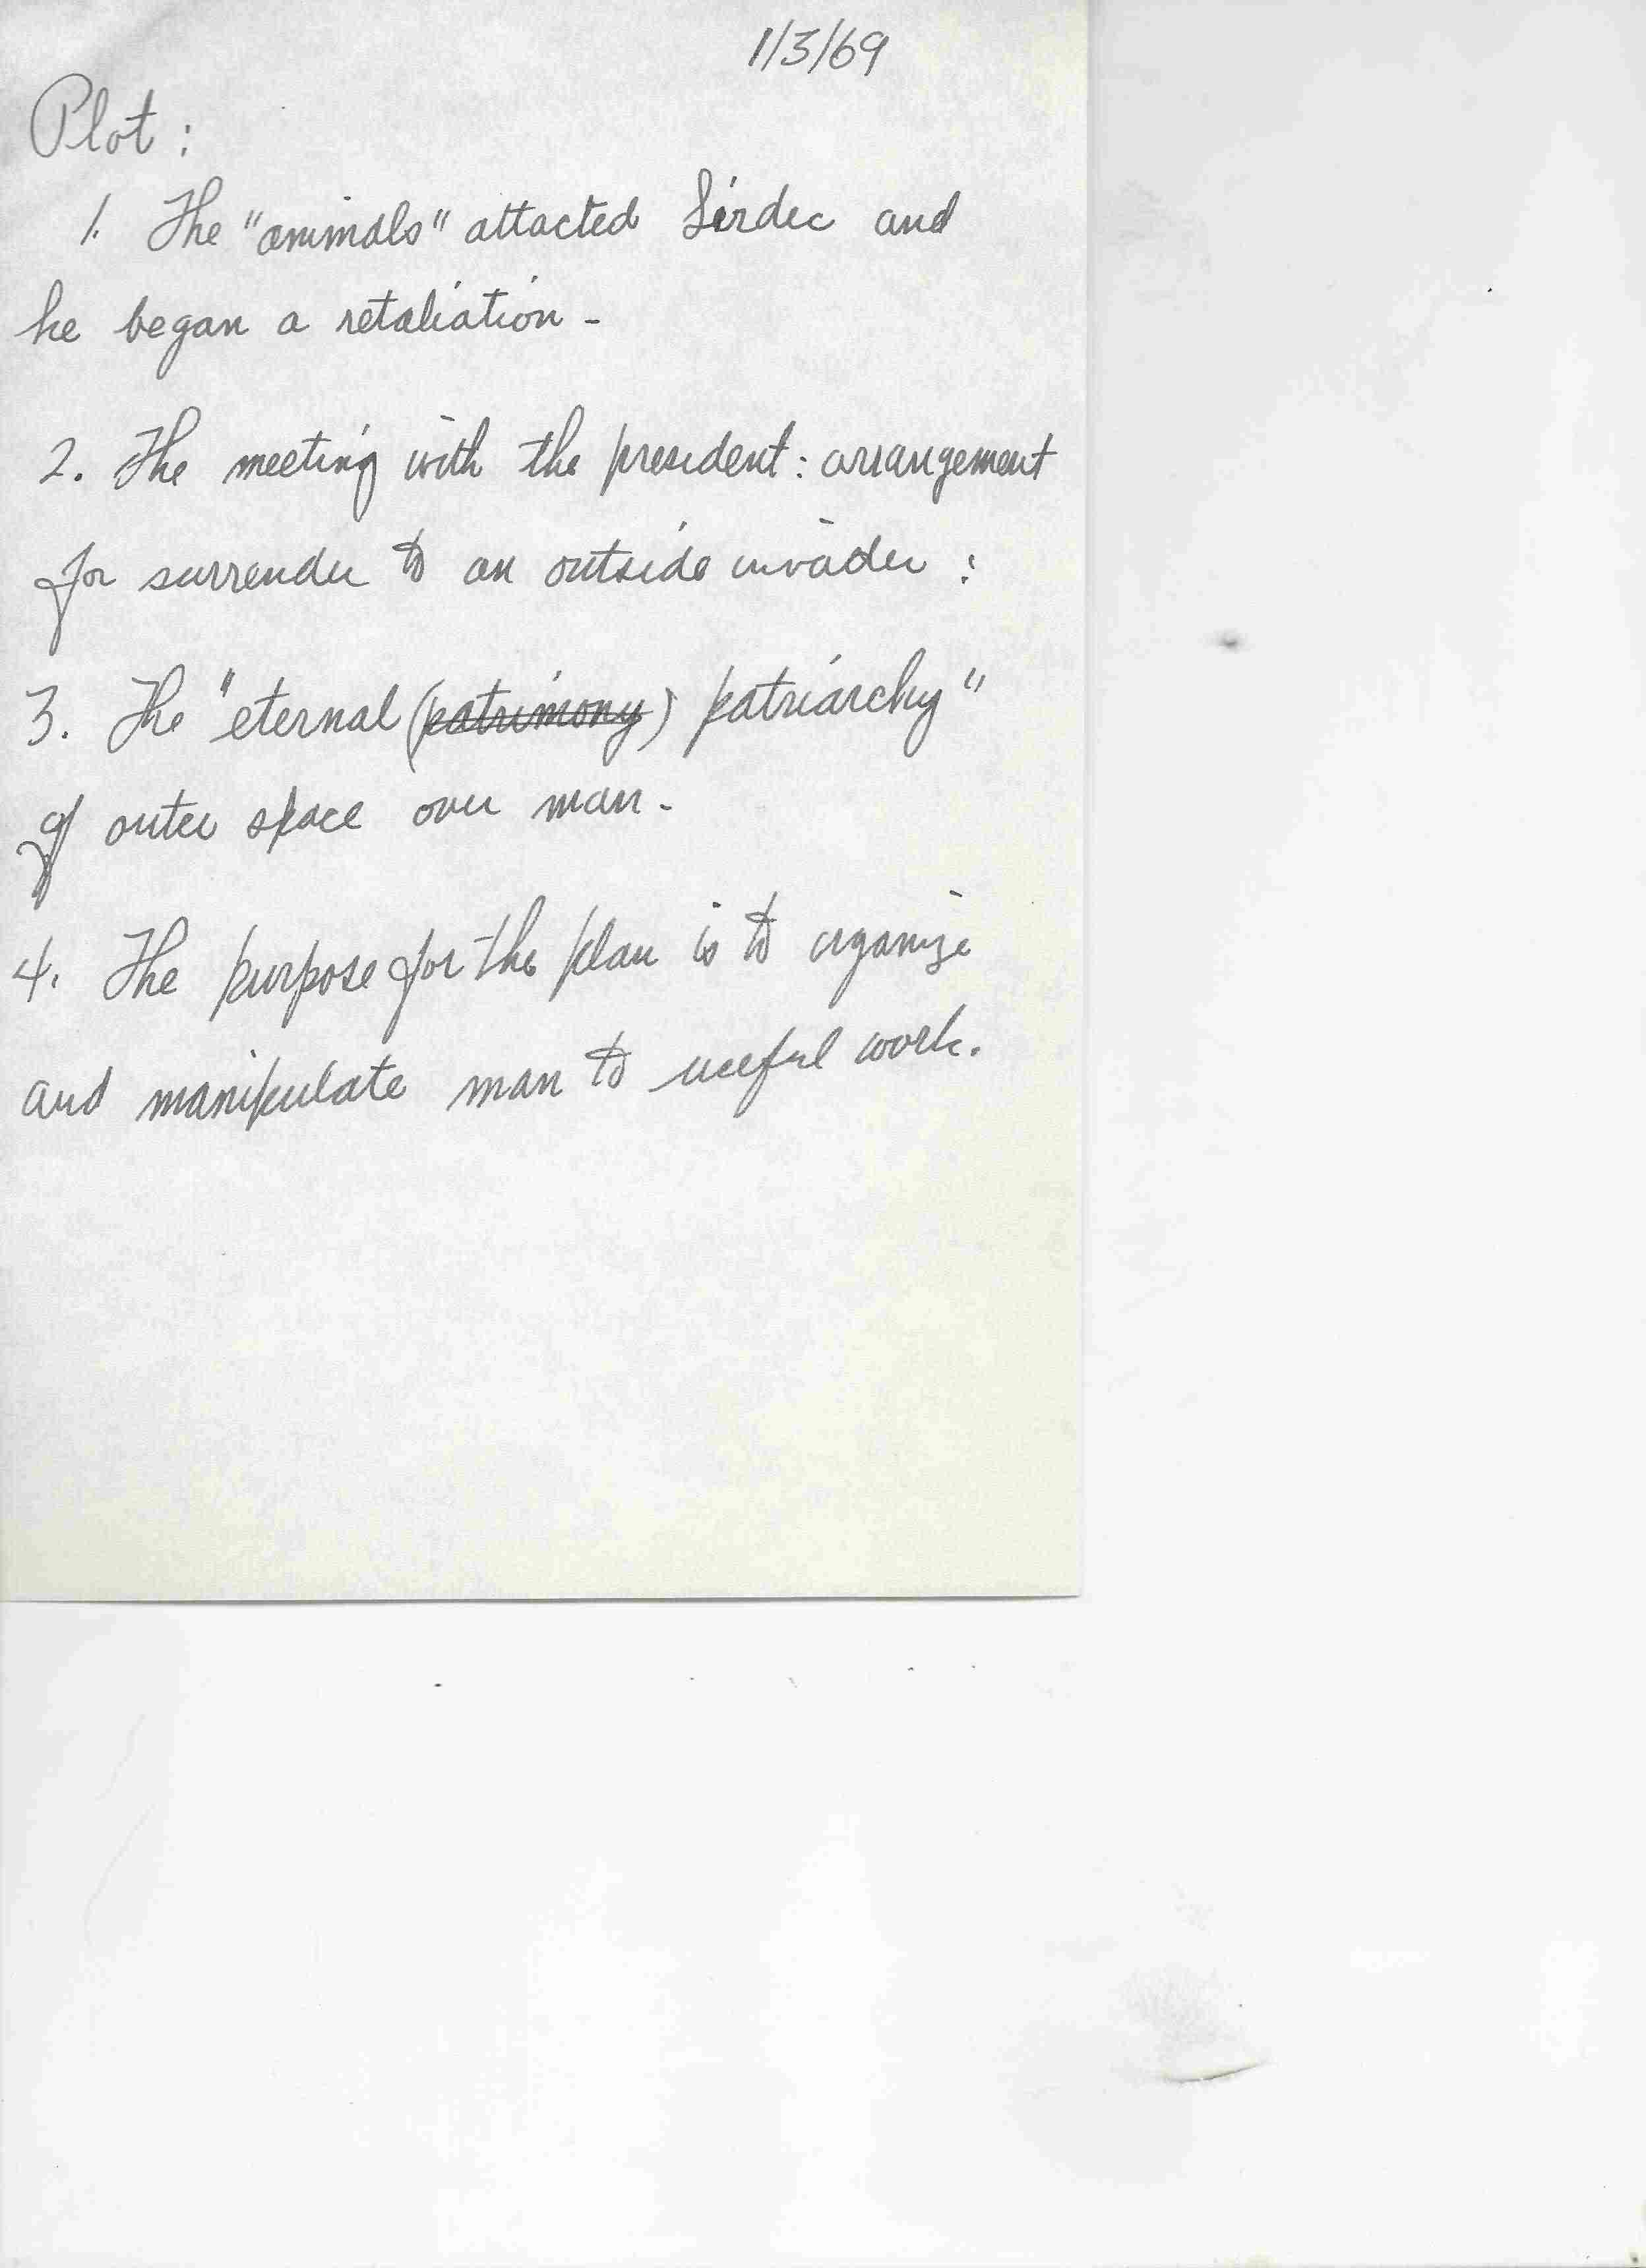 1/3/69
Plot :
1. The "animals" attacted Sirdec and
he began a retaliation -
2. The meeting with the president : arrangement
for surrender to an outside invader :
3. The "eternal (patrimony) patriarchy"
of outer space over man -
4. The purpose for the plan is to organize
and manipulate man to useful work.